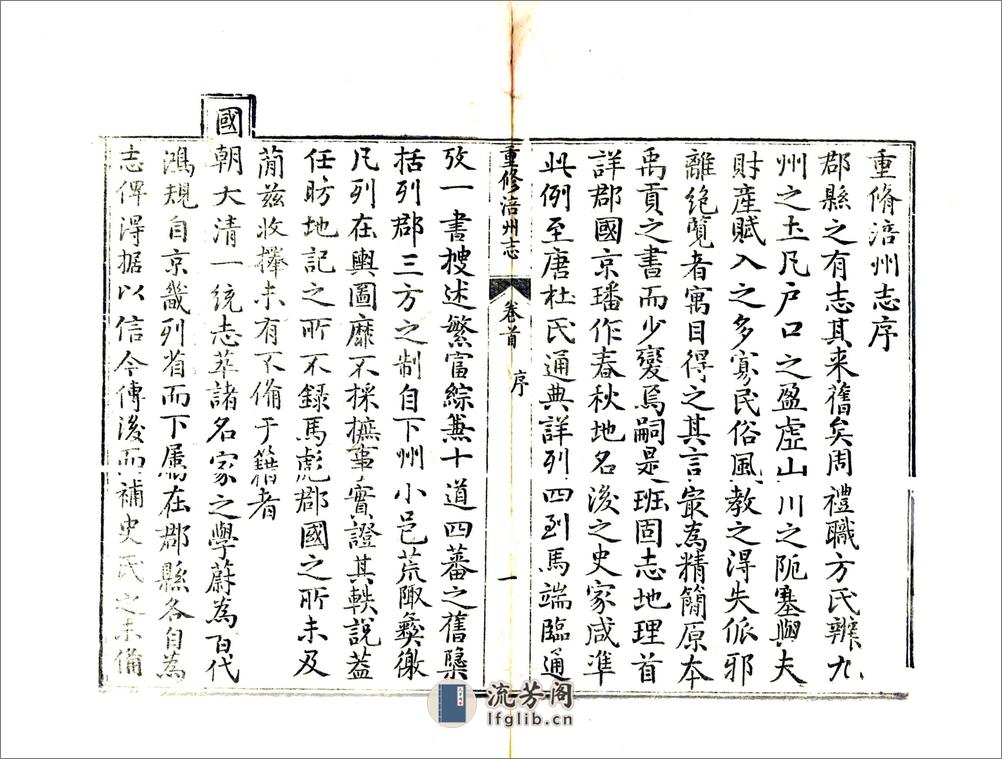 重脩涪州志序
郡縣之有志其來舊矣周禮職方氏辨九
州之土凡户口之盈虛山川之阨塞與夫
財產賦入之多寡民俗風教之淂失佌邪
離絶覽者寓目得之其言最為精簡原本
禹貢之書而少變焉嗣是班固志地理首
詳郡國京璠作春秋地名後之史家咸准
此例至唐杜氏通典詳列四到馬端臨通
重修涪州志
卷首
序
一
攷一書搜述繁富綜兼十道四蕃之舊隱
括列郡三方之制自下州小邑荒陬彝徼
凡列在輿圖靡不採摭事實證其軼說蓋
任昉地記之所不錄馬彪郡國之所未及
簡兹收擇未有不備于籍者
國朝大清一統志萃諸名家之學蔚為百代
鴻規自京畿列省而下属在郡縣各自為
志俾淂据以信今傳後而補史氏之未備
流芳阁
lfglib.cn